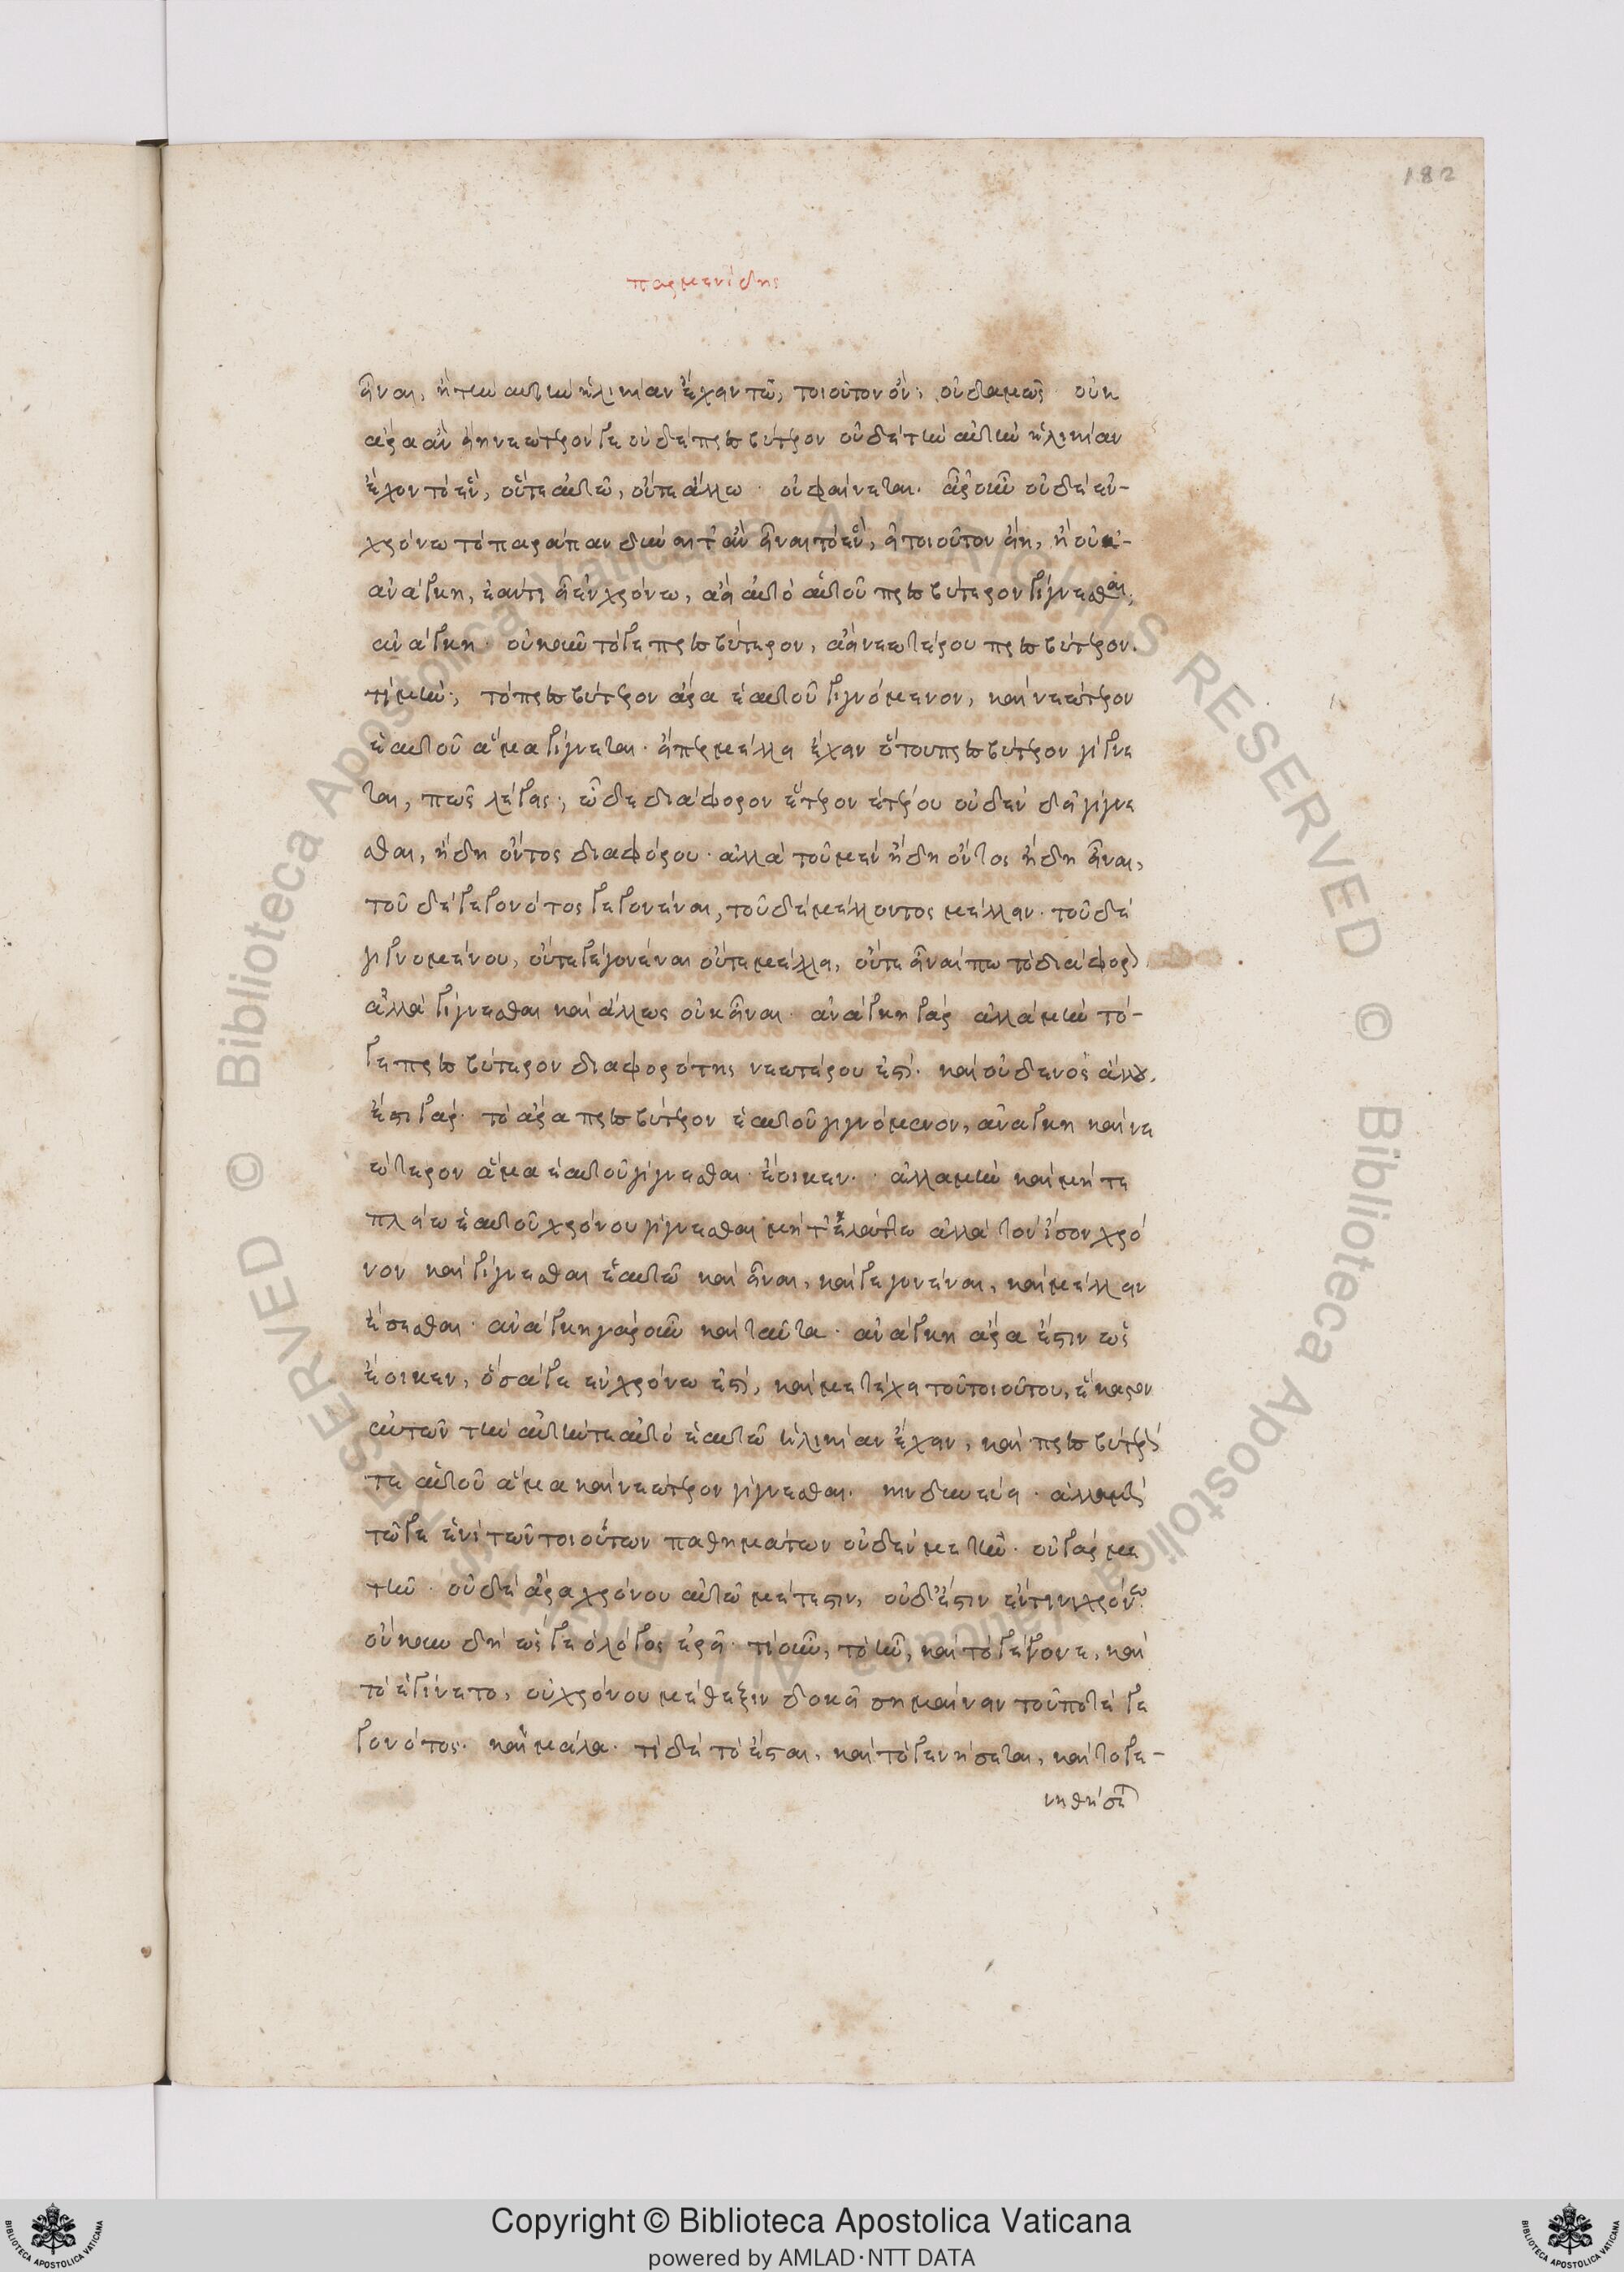 182
παρμενίδης
εἶναι, ἢ τὴν αὐτὴν ἡλικίαν ἔχειν τῷ, τοιοῦτον ὄν; οὐδαμῶς. οὐκ
ἄρα ἂν εἴη νεώτερόν γε οὐδὲ πρεσβύτερον οὐδὲ τὴν αὐτὴν ἡλικίαν
ἔχον τὸ ἓν, οὔτε αὑτῷ, οὔτε ἄλλῳ. οὐ φαίνεται. ἆρ' οὖν οὐδὲ ἐν
χρόνῳ τὸ παράπαν δύναιτ' ἂν εἶναι τὸ ἓν, εἰ τοιοῦτον εἴη, ἢ οὐκ
ἀνάγκη, ἐάν τι ᾖ ἐν χρόνῳ, ἀεὶ αὐτὸ αὑτοῦ πρεσβύτερον γίγνεσθαι;
ἀνάγκη. οὐκοῦν τό γε πρεσβύτερον, ἀεὶ νεωτέρου πρεσβύτερον.
τί μήν; τὸ πρεσβύτερον ἄρα ἑαυτοῦ γιγνόμενον, καὶ νεώτερον
ἑαυτοῦ ἅμα γίγνεται. εἴπερ μέλλει ἔχειν ὅτου πρεσβύτερον γίγνε
ται, πῶς λέγεις; ὧδε διάφορον ἕτερον ἑτέρου οὐδὲν δεῖ γίγνε
σθαι, ἤδη ὄντος διαφόρου. ἀλλὰ τοῦ μὲν ἤδη ὄντος ἤδη εἶναι,
τοῦ δὲ γεγονότος γεγονέναι, τοῦ δὲ μέλλοντος μέλλειν. τοῦ δὲ
γιγνομένου, οὔτε γεγονέναι οὔτε μέλλει, οὔτε εἶναί πω τὸ διάφορον
ἀλλὰ γίγνεσθαι καὶ ἄλλως οὐκ εἶναι. ἀνάγκη γάρ ἀλλὰ μὴν τό
γε πρεσβύτερον διαφορότης νεωτέρου ἐστί. καὶ οὐδενὸς ἄλλου.
ἔστι γάρ. τὸ ἄρα πρεσβύτερον ἑαυτοῦ γιγνόμενον, ἀνάγκη καὶ νε
ώτερον ἅμα ἑαυτοῦ γίγνεσθαι. ἔοικεν. ἀλλὰ μὴν καὶ μήτε
πλείω ἑαυτοῦ χρόνου γίγνεσθαι μήτ' ἐλάττω ἀλλὰ τὸν ἴσον χρό
νον καὶ γίγνεσθαι ἑαυτῷ καὶ εἶναι, καὶ γεγονέναι, καὶ μέλλειν
ἔσεσθαι. ἀνάγκη γὰρ οὖν καὶ ταῦτα. ἀνάγκη ἄρα ἔστιν ὡς
ἔοικεν, ὅσα γε ἐν χρόνῳ ἐστί, καὶ μετέχει τοῦ τοιούτου, ἕκαστον
αὐτῶν τὴν αὐτήν τε αὐτὸ ἑαυτῷ ἡλικίαν ἔχειν, καὶ πρεσβύτερόν
τε αὑτοῦ ἅμα καὶ νεώτερον γίγνεσθαι. κινδυνεύει. ἀλλὰ μὴν
τῷ γε ἑνὶ τῶν τοιούτων παθημάτων οὐδὲν μετῆν. οὐ γὰρ με
τῆν. οὐδὲ ἄρα χρόνου αὐτῷ μέτεστιν, οὐδ' ἔστιν ἔν τινι χρόνῳ.
οὔκουν δὴ ὥς γε ὁ λόγος ἐρεῖ. τί οὖν, τὸ ἦν, καὶ τὸ γέγονε, καὶ
τὸ ἐγίνετο, οὐ χρόνου μέθεξιν δοκεῖ σημαίνειν τοῦ ποτὲ γε
γονότος. καὶ μάλα. τί δὲ τὸ ἔσται, καὶ τὸ γενήσεται, καὶ τὸ γε-
νηθήσεται